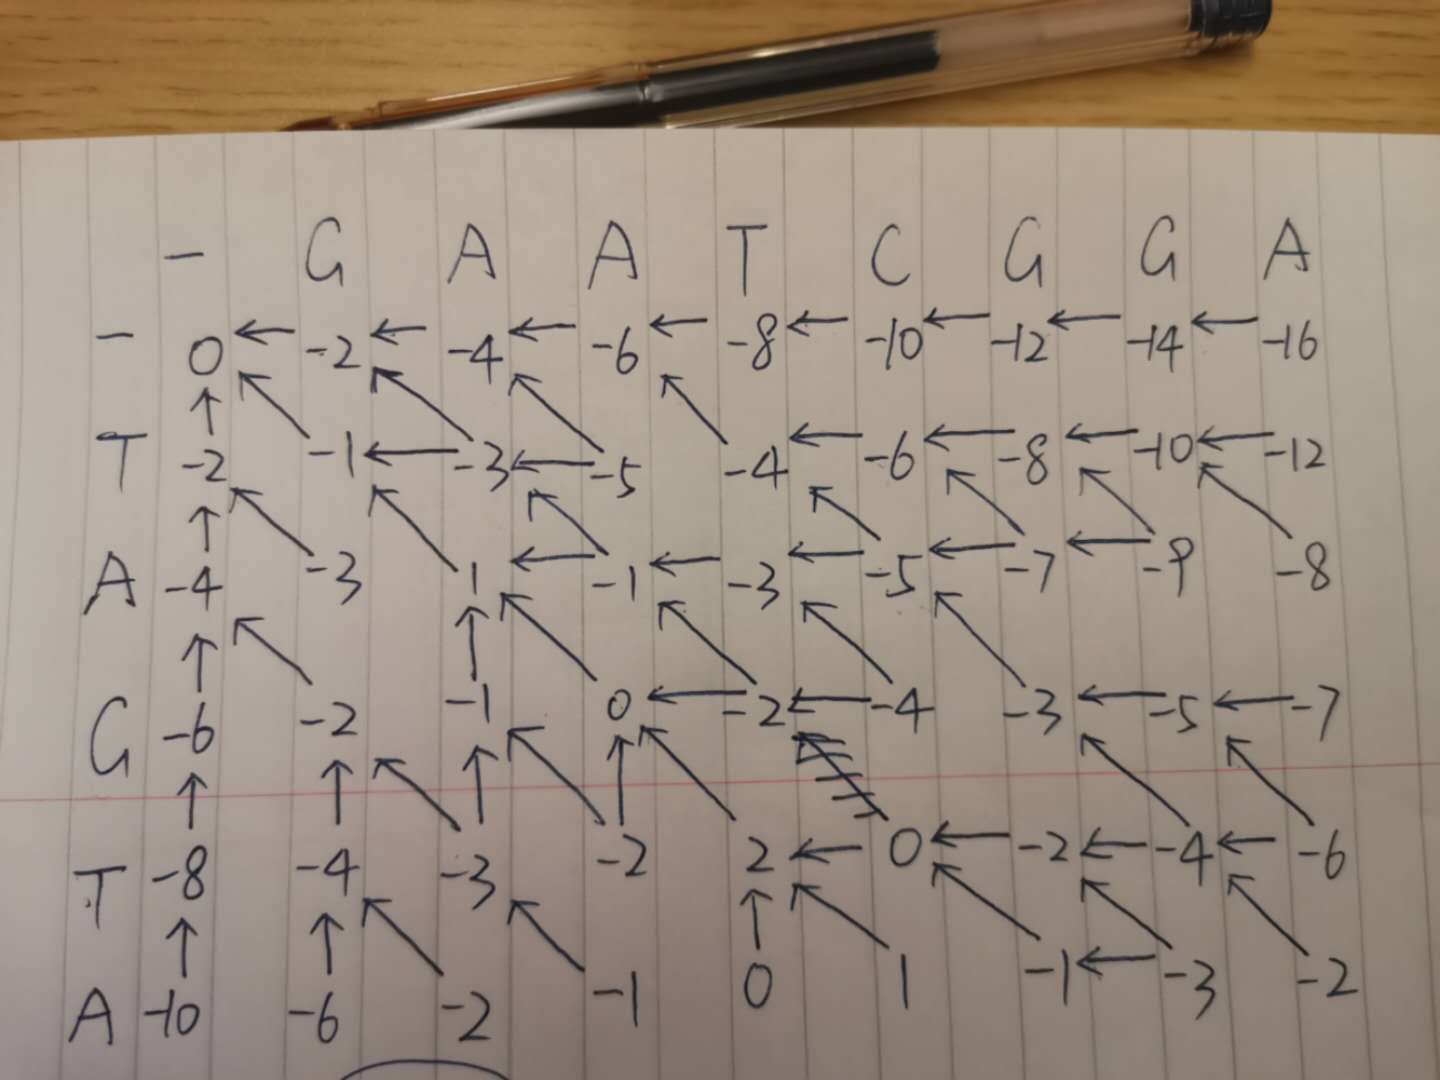 - G A A T C G G A
- 0 ← -2 ← -4 ← -6 ← -8 ← -10 ← -12 ← -14 ← -16
T -2 -1 ← -3 ← -5 -4 ← -6 ← -8 ← -10 ← -12
A -4 -3 1 ← -1 ← -3 ← -5 ← -7 ← -9 -8
G -6 -2 -1 0 ← -2 ← -4 -3 ← -5 ← -7
T -8 -4 -3 -2 2 ← 0 ← -2 ← -4 ← -6
A -10 -6 -2 -1 0 1 -1 ← -3 -2